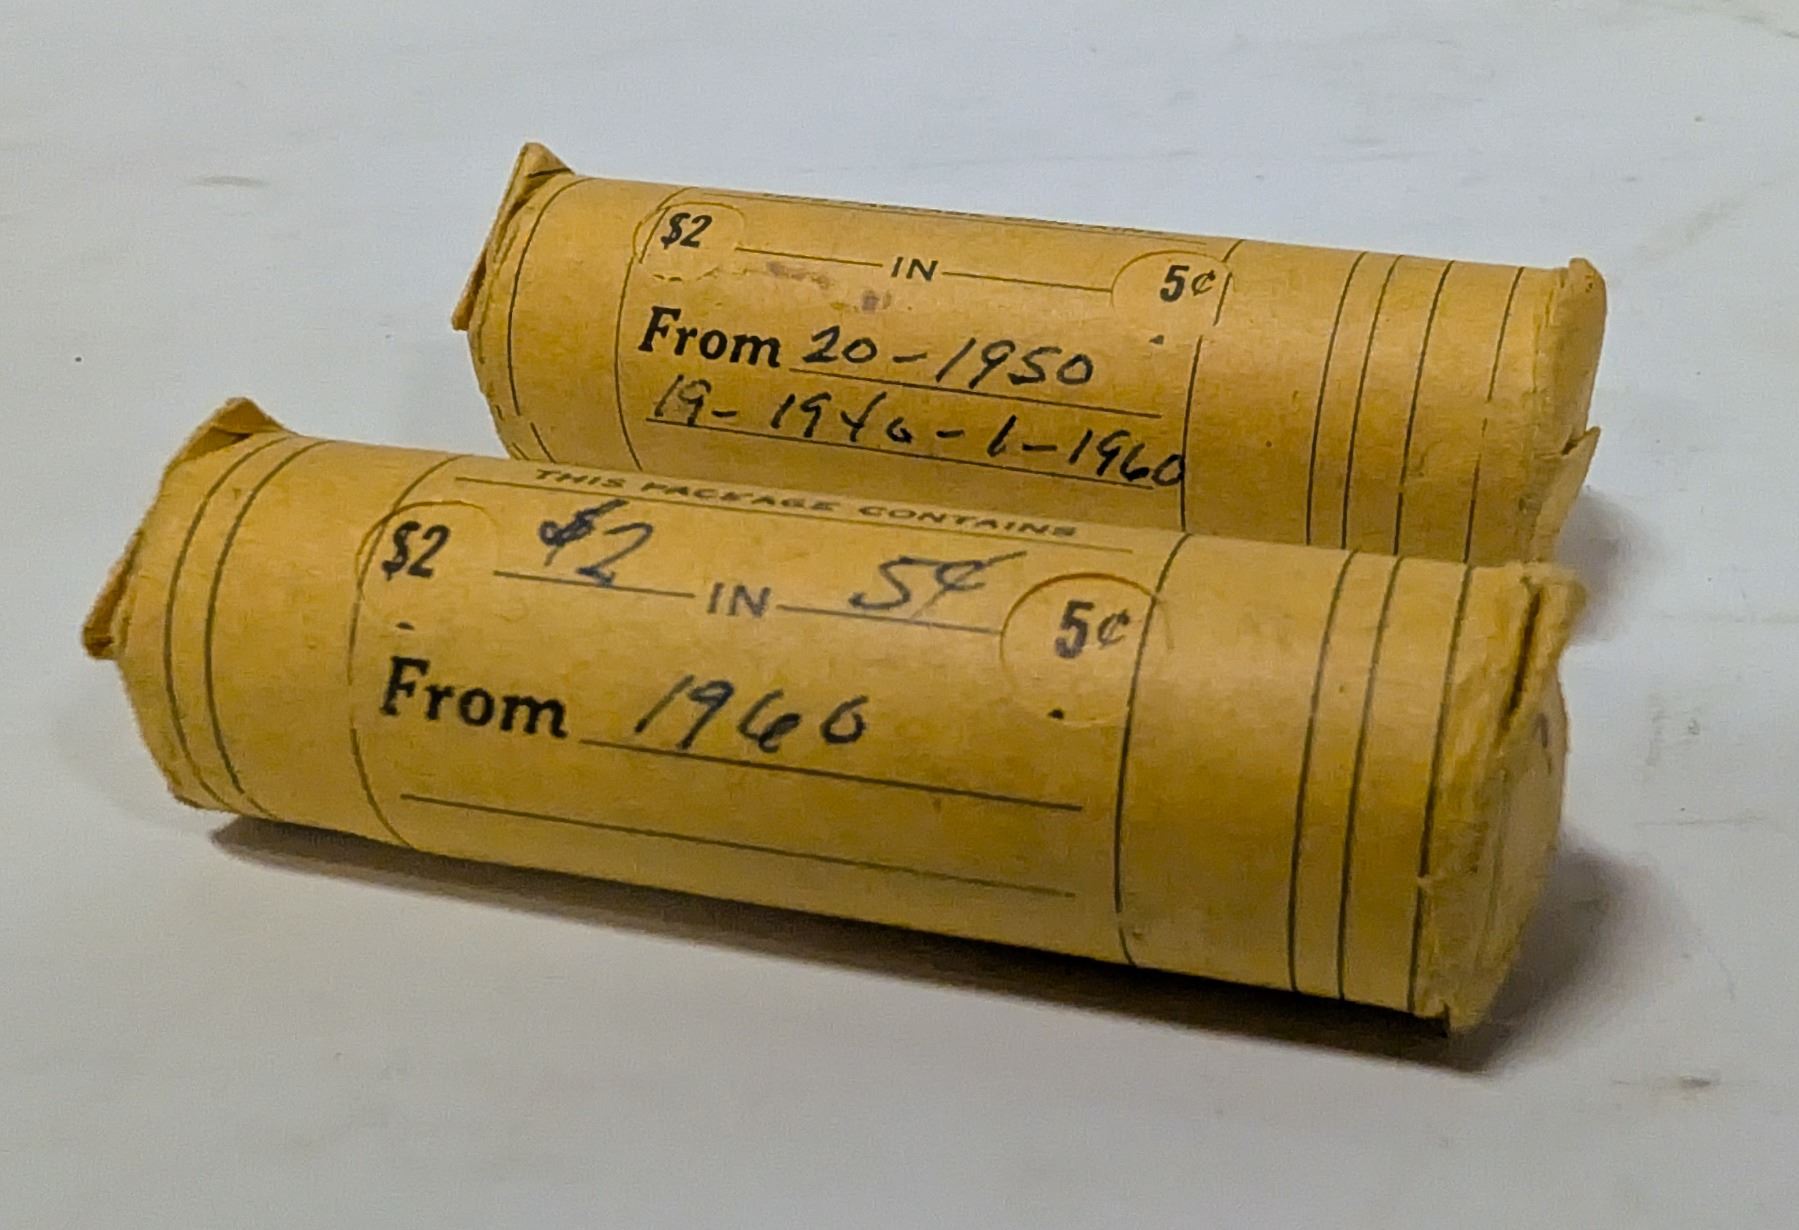 $2 IN 5¢
From 20-1950
19-1940-1-1960
THIS PACKAGE CONTAINS
$2 $2 IN 5¢ 5¢
From 1960